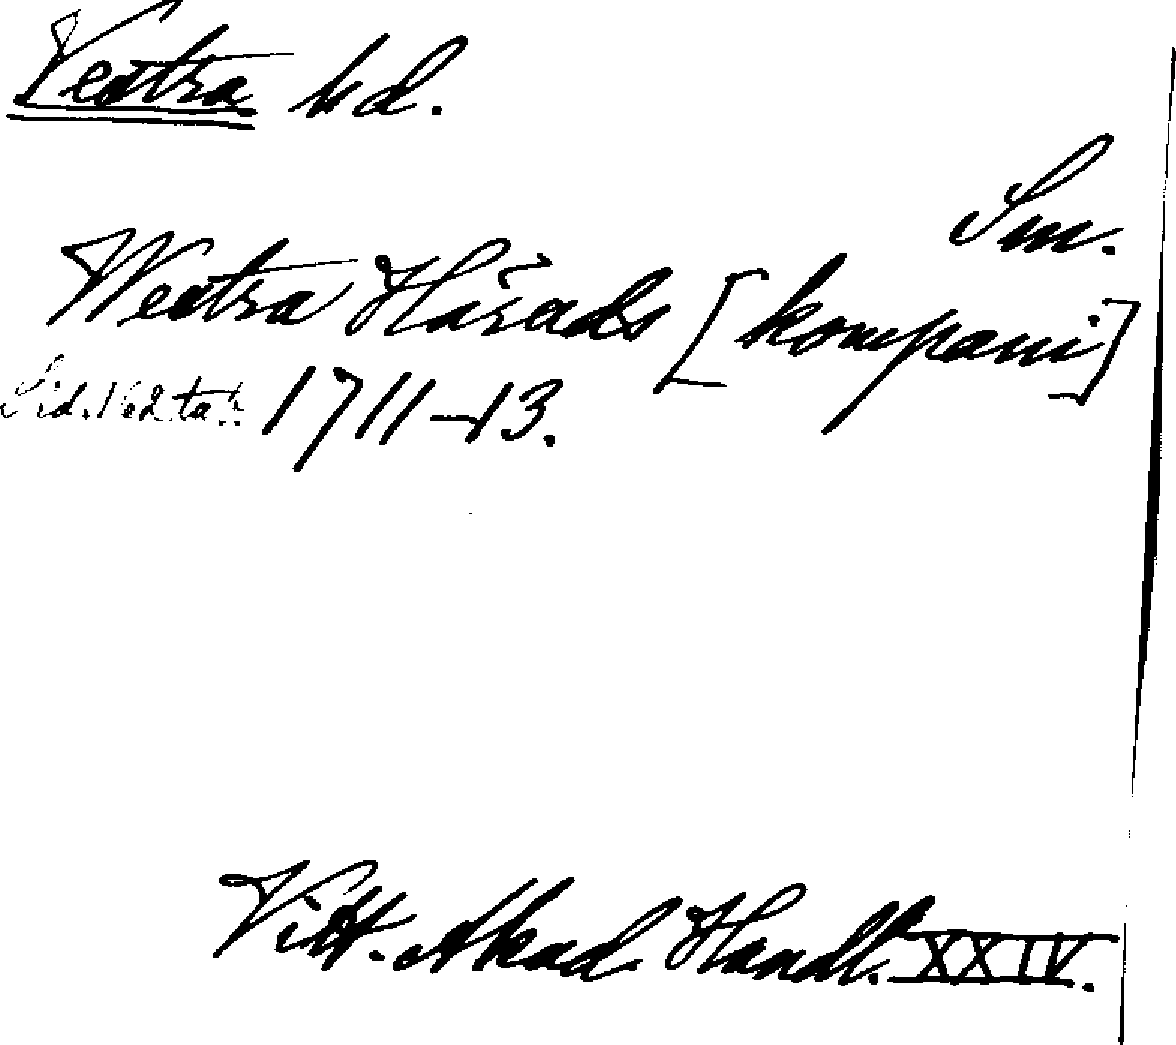 Vestra hd.
Sm.
Westra Härads [kompani]
Sid. 162 tab. 1711–13.
Vitt. Akad. Handl. XXIV.